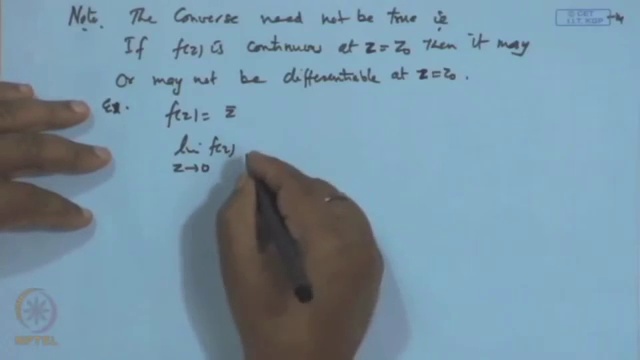 Note. The Converse need not be true ie
© CET
I.I.T. KGP
If f(z) is continuous at z = z₀ then it may
Or may not be differentiable at z = z₀.
Ex. f(z) = z̄
lim f(z)
z→0
NPTEL